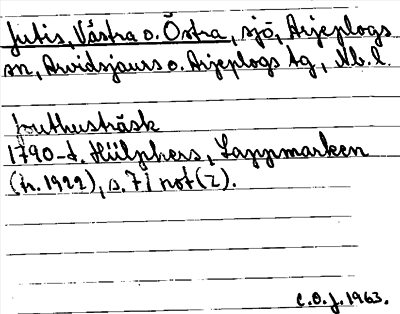 Jutis, Västra o. Östra, sjö, Arjeplogs
sn, Arvidsjaurs o. Arjeplogs tg, Nb. l.
Jouthusträsk
1790-t. Hülphers, Lappmarken
(tr. 1922), s. 71 not (z).
C.O.J. 1963.